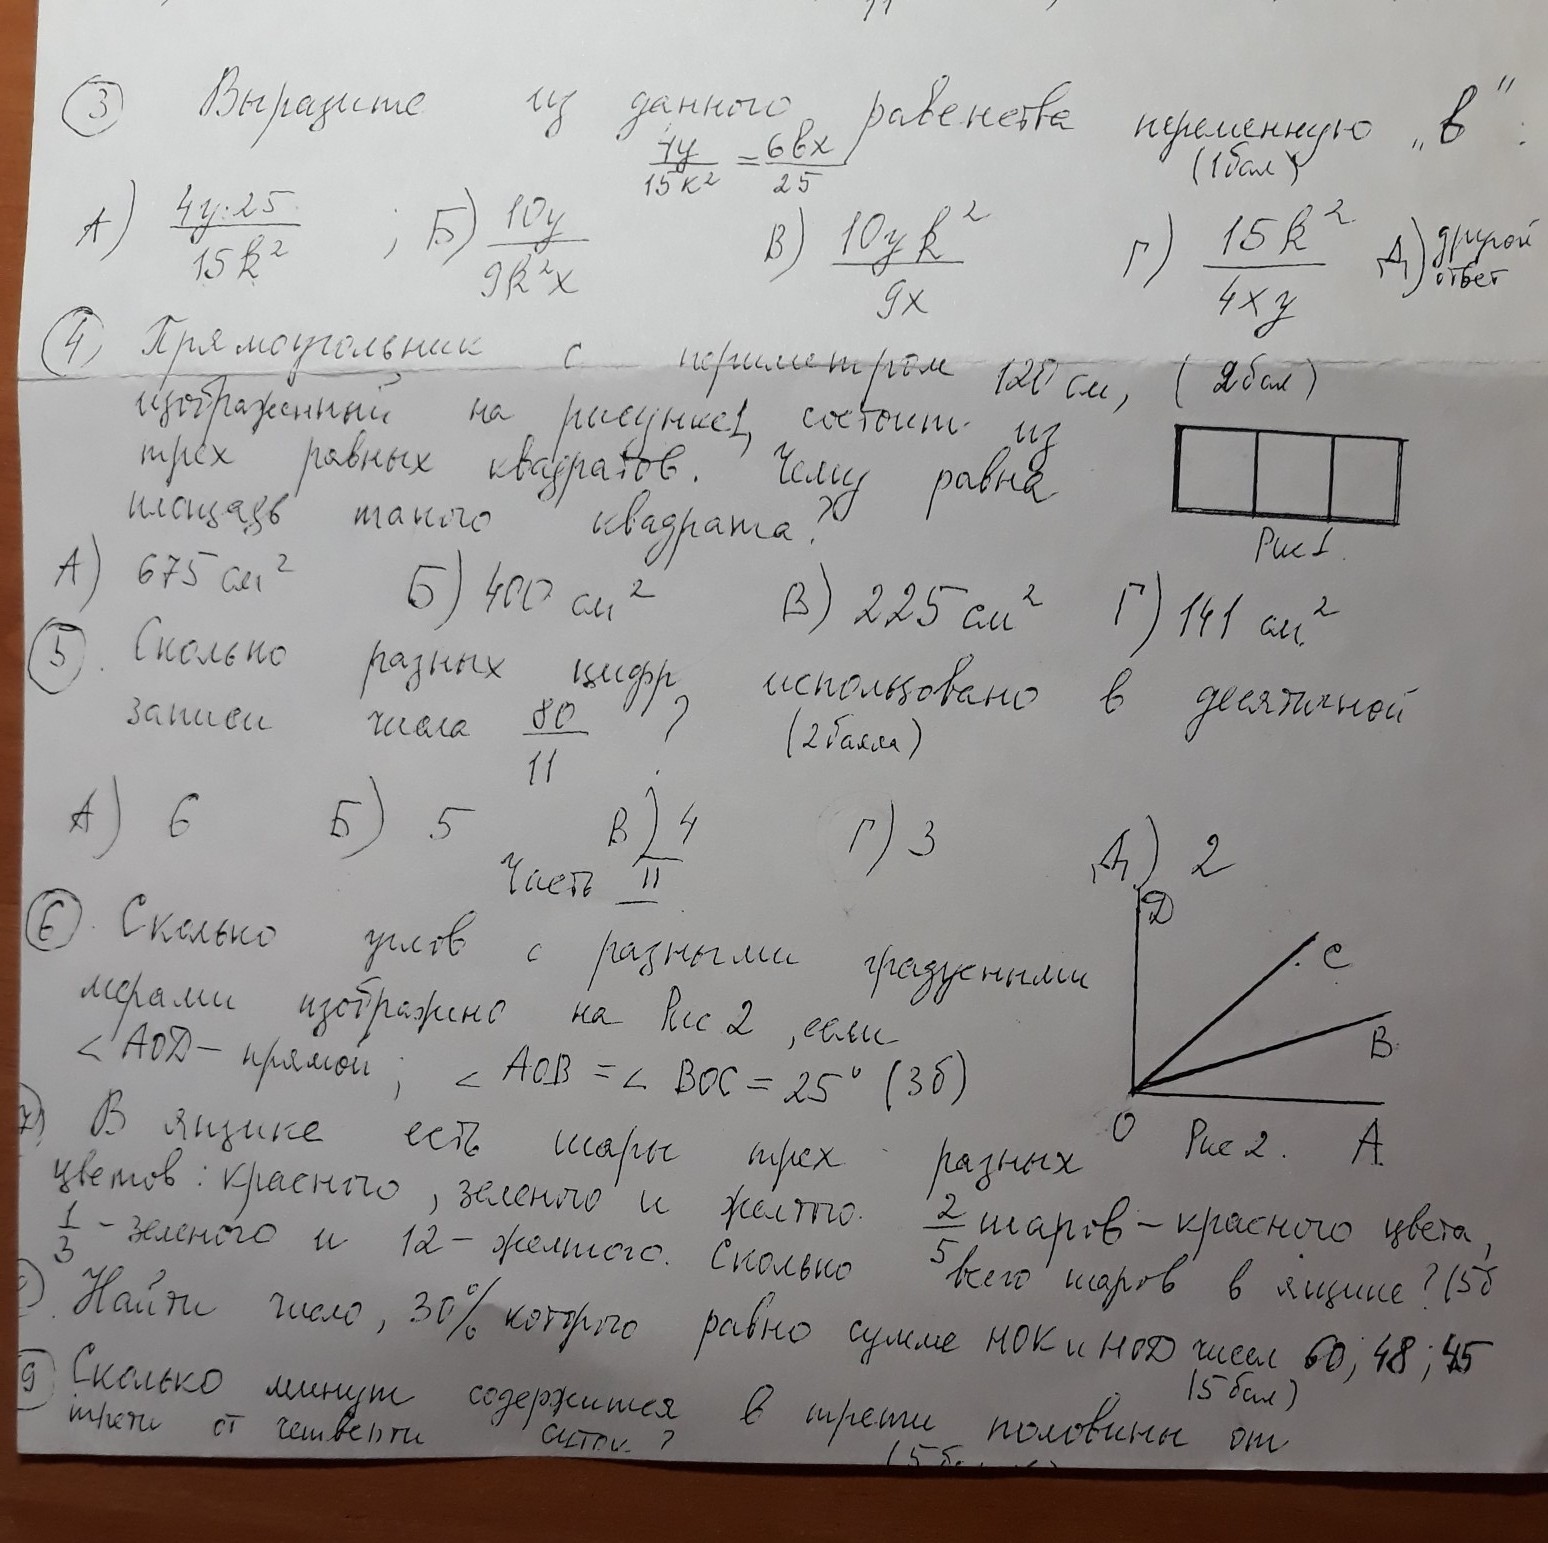 11
③ Выразите из данного равенства переменную „в":
4y/15к² = 6вx/25 (1бал)
А) 4y·25/15k² ; Б) 10y/9k²x В) 10yk²/9x Г) 15k²/4xy Д) другой ответ
④ Прямоугольник с периметром 120 см, (2бал)
изображенный на рисунке1, состоит из
трех равных квадратов. Чему равна
площадь такого квадрата?
Рис 1.
А) 675 см² Б) 400 см² В) 225 см² Г) 141 см²
⑤. Сколько разных цифр использовано в десятичной
записи числа 80/11 ? (2балла)
А) 6 Б) 5 В) 4 Г) 3 Д) 2
Часть II
⑥. Сколько углов с разными градусными
мерами изображено на Рис 2, если
∠AOD – прямой; ∠AOB = ∠BOC = 25° (3б)
D
C
B
O Рис 2. A
7) В ящике есть шары трех разных
цветов: красного, зеленого и желтого. 2/5 шаров – красного цвета,
1/3 – зеленого и 12 – желтого. Сколько всего шаров в ящике? (5б
Найти число, 30% которого равно сумме НОК и НОД чисел 60; 48; 45
(5бал)
9 Сколько минут содержится в трети половины от
трети от четверти суток?